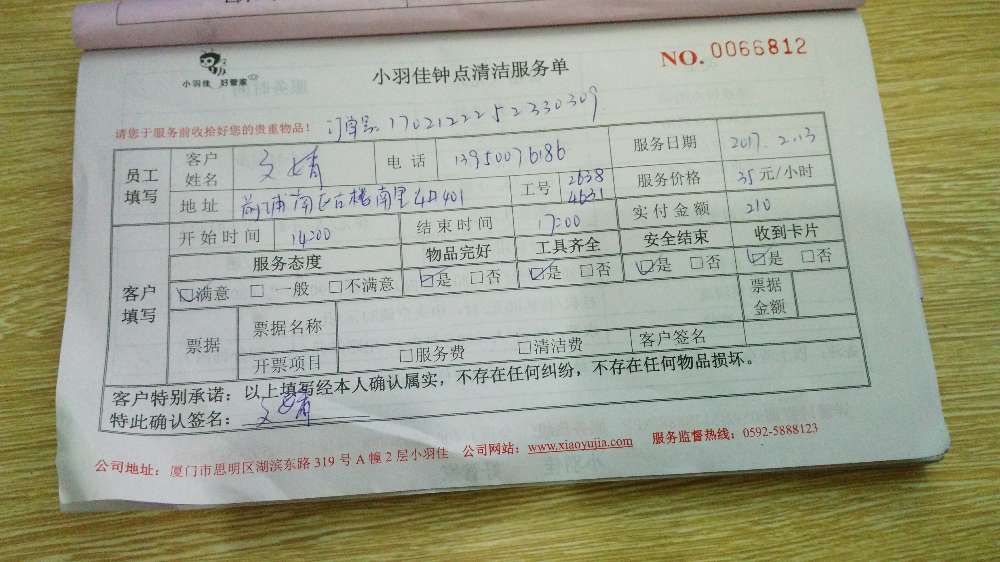 小羽佳 好管家
小羽佳钟点清洁服务单
NO. 0066812
请您于服务前收拾好您的贵重物品！ 订单号: 1702122252330309
员工填写 客户姓名 文婧 电话 13950076186 服务日期 2017.2.13
地址 前埔南区古楼南里4#401 工号 2638 4631 服务价格 35元/小时
客户填写 开始时间 14:00 结束时间 17:00 实付金额 210
服务态度 物品完好 工具齐全 安全结束 收到卡片
☑满意 □一般 □不满意 ☑是 □否 ☑是 □否 ☑是 □否 ☑是 □否
票据 票据名称 票据金额
开票项目 □服务费 □清洁费 客户签名
客户特别承诺：以上填写经本人确认属实，不存在任何纠纷，不存在任何物品损坏。
特此确认签名：文婧
公司地址：厦门市思明区湖滨东路319号A幢2层小羽佳 公司网站：www.xiaoyujia.com 服务监督热线：0592-5888123